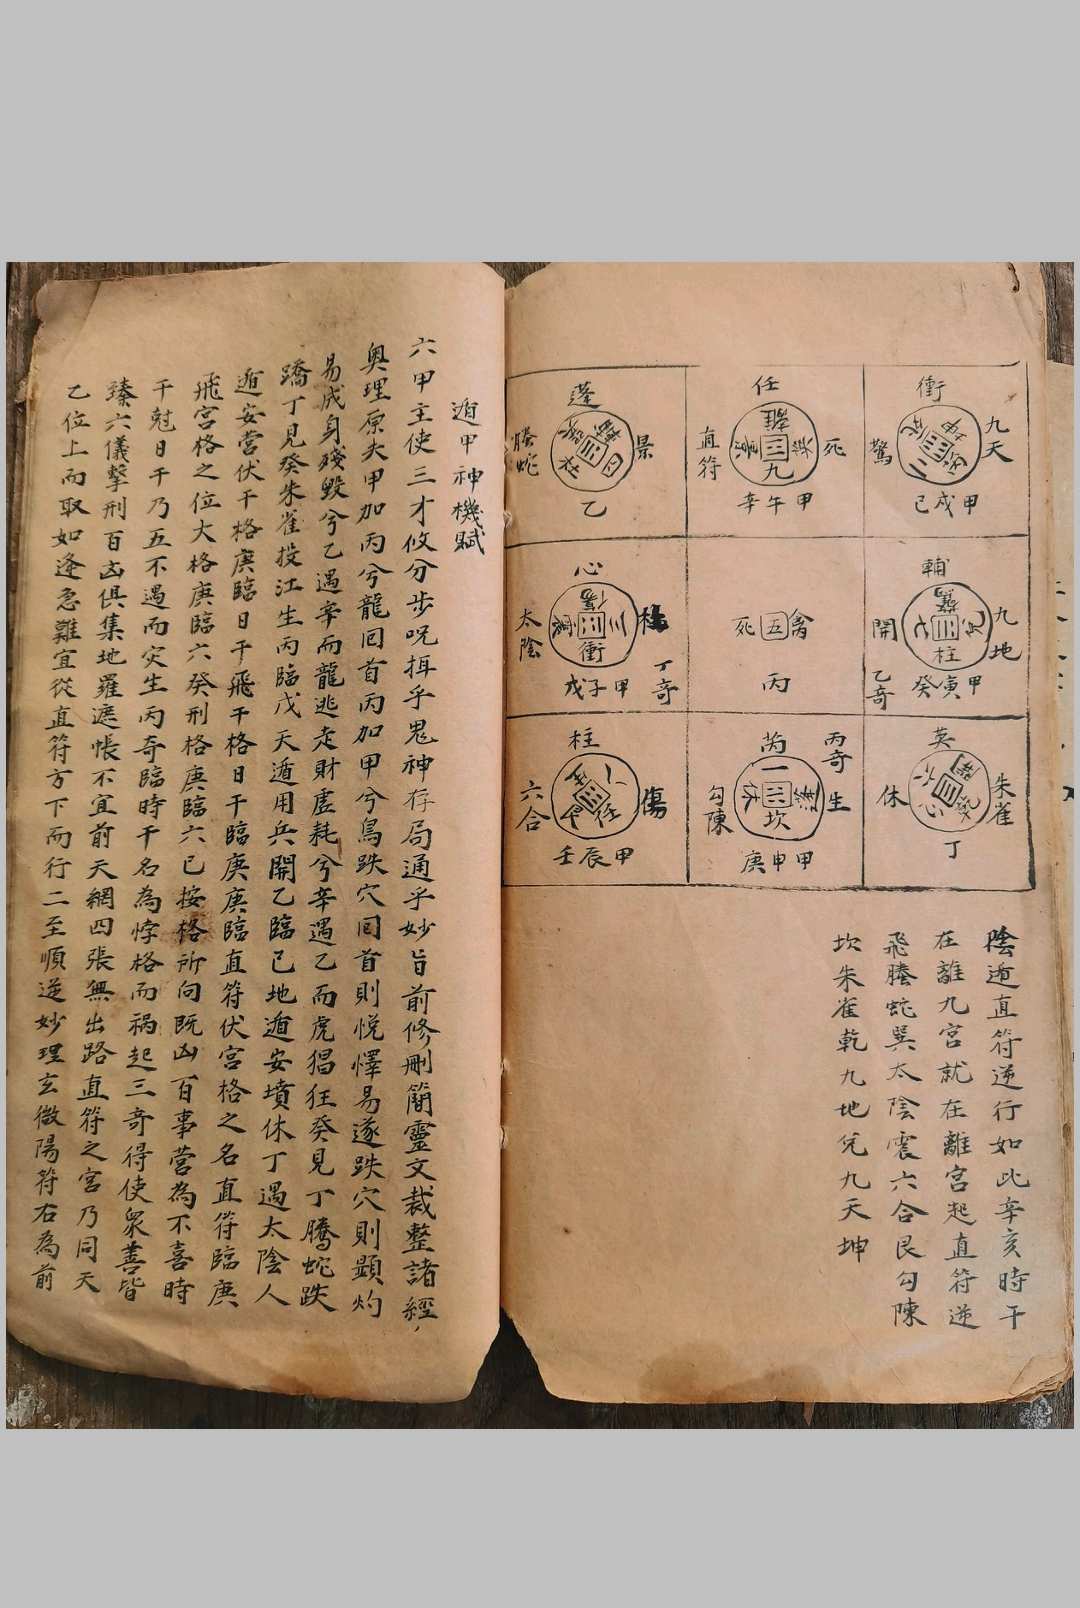 衝
九天
驚
甲戌己
任
直符
死
離
景
九
甲午辛
蓬
螣蛇
景
杜
四
乙
輔
九地
開
七
柱
甲寅癸
乙奇
禽
五
死
丙
心
太陰
震
三
傷
衝
甲子戊
丁奇
英
朱雀
休
六
心
丁
芮
丙奇
生
勾陳
一
休
坎
甲申庚
柱
六合
傷
八
任
甲辰壬
陰遁直符逆行如此辛亥時干
在離九宮就在離宮起直符逆
飛螣蛇巽太陰震六合艮勾陳
坎朱雀乾九地兌九天坤
遁甲神機賦
六甲主使三才攸分步呪揖乎鬼神存局通乎妙旨前修刪簡靈文裁整諸經
奧理原夫甲加丙兮龍囘首丙加甲兮鳥跌穴囘首則悅懌易遂跌穴則顯灼
易成身殘毀兮乙遇辛而龍逃走財虛耗兮辛遇乙而虎猖狂癸見丁騰蛇跌
蹻丁見癸朱雀投江生丙臨戊天遁用兵開乙臨己地遁安墳休丁遇太陰人
遁安營伏干格庚臨日干飛干格日干臨庚庚臨直符伏宮格之名直符臨庚
飛宮格之位大格庚臨六癸刑格庚臨六己按格所向既凶百事營為不喜時
干尅日干乃五不遇而灾生丙奇臨時干名為悖格而禍起三奇得使眾善皆
臻六儀擊刑百凶俱集地羅遮帳不宜前天網四張無出路直符之宮乃同天
乙位上而取如逢急難宜從直符方下而行二至順逆妙理玄微陽符右為前